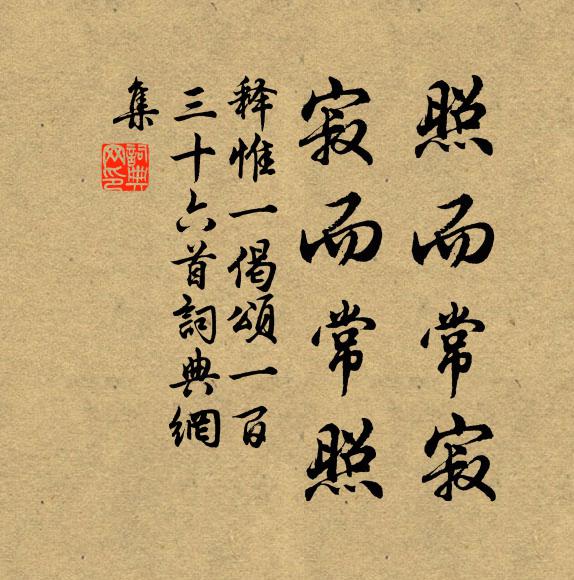 照而常寂
寂而常照
释惟一偈頌一百
三十六首詞典網
集
詞典网印